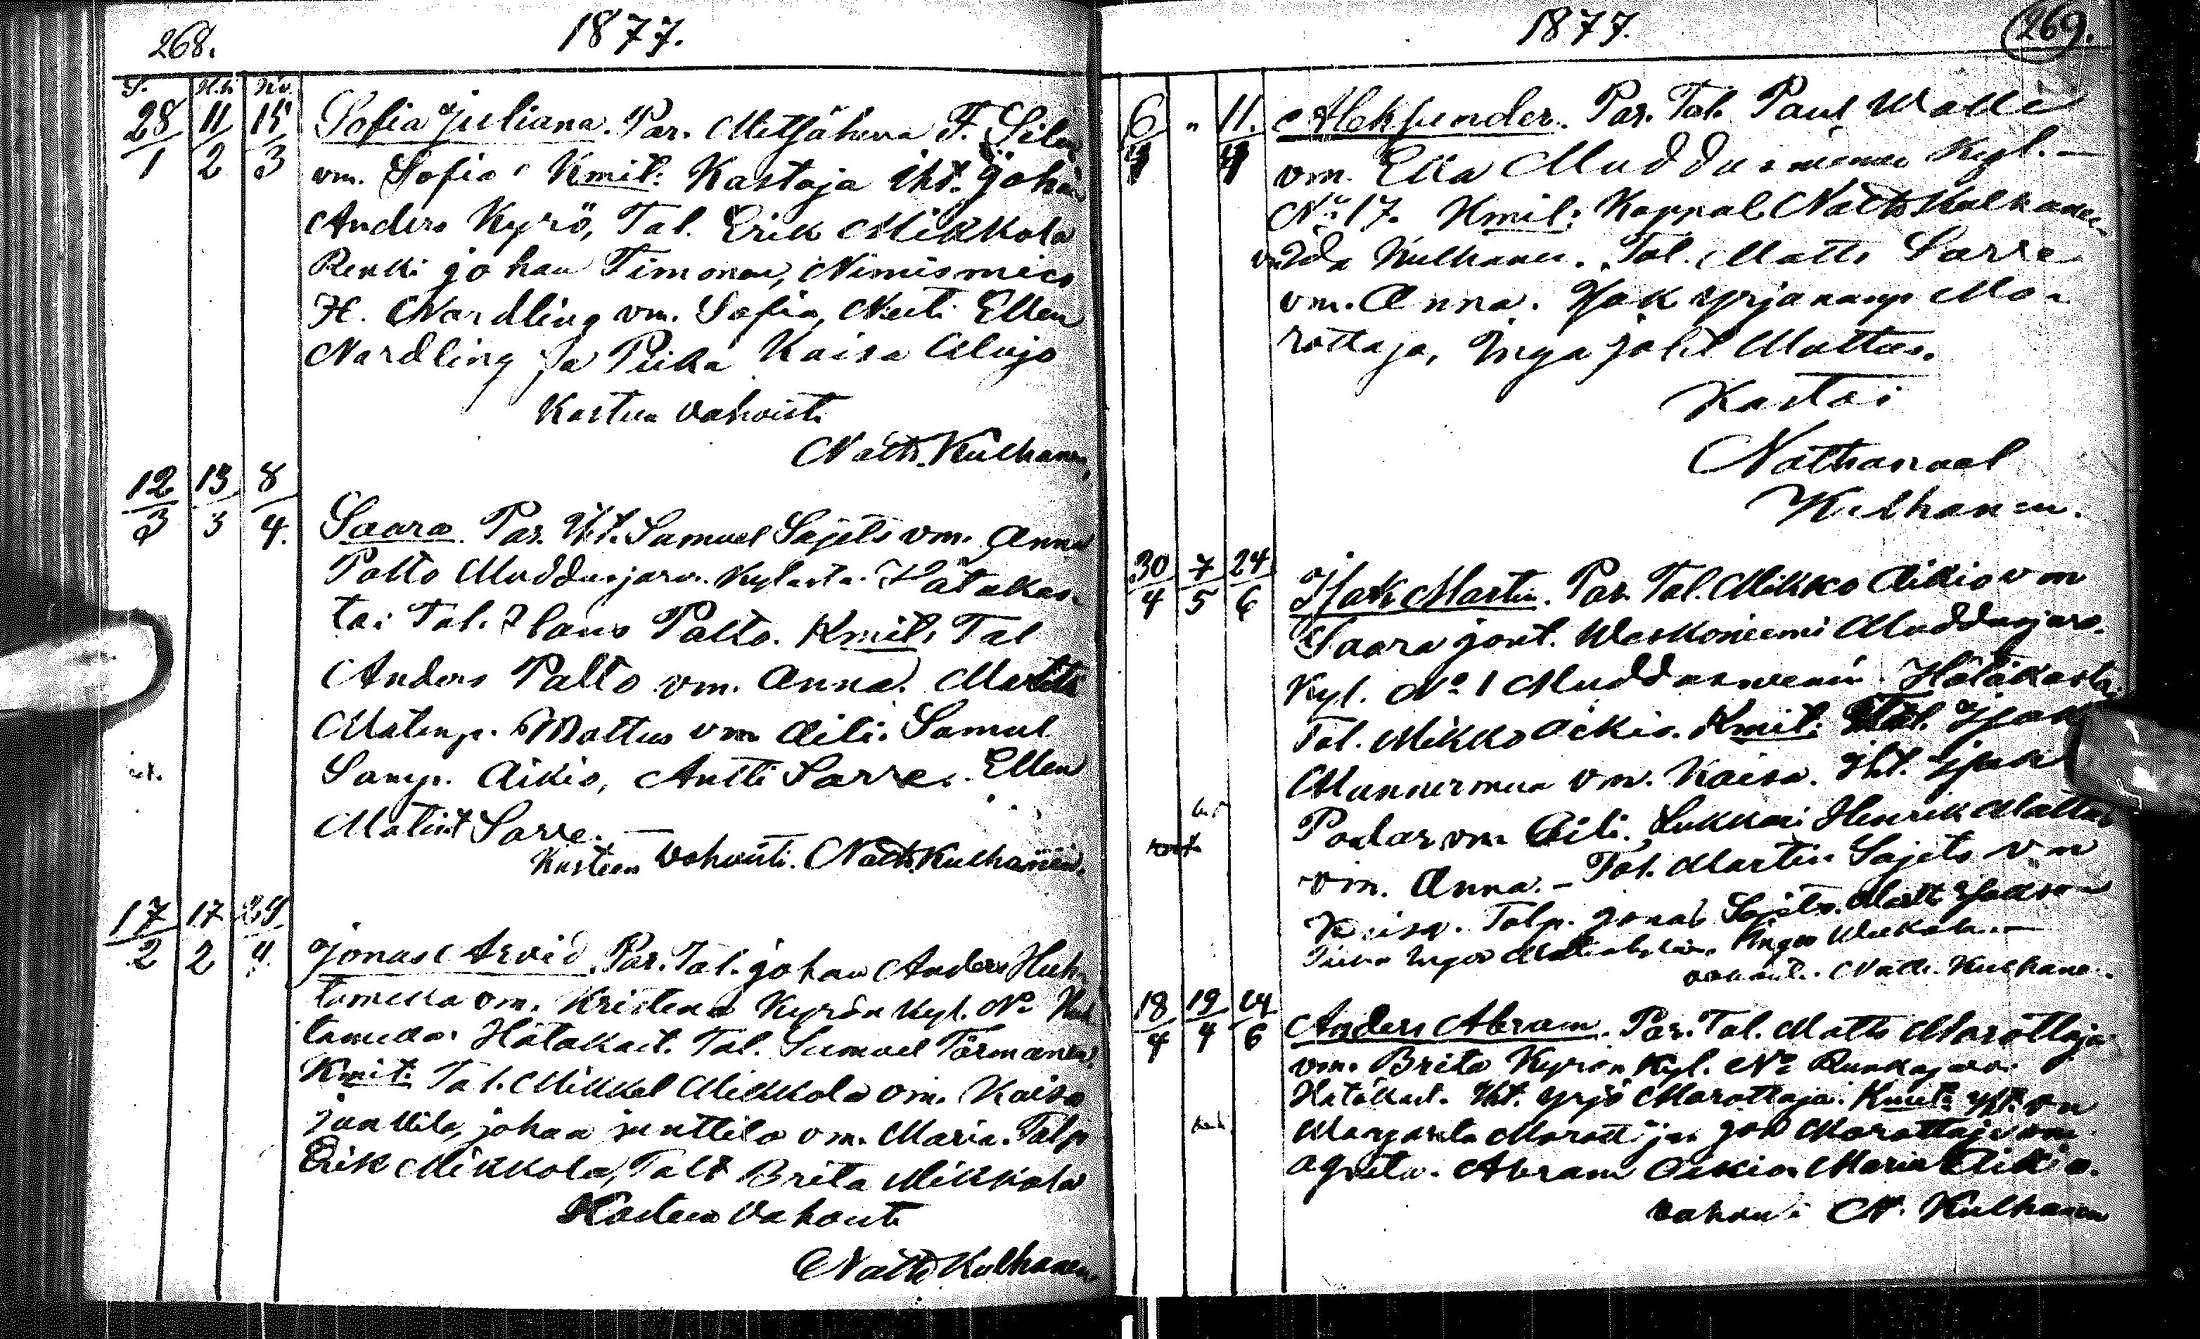 268.
1877.
S. H.k. Kv.
28/1 11/2 15/3
Sofia Juliana. Par. Metsäherra F. Silen
vm. Sofia Kmit: Kastaja Iht. Johan
Anders Kyrö, Tal. Erik Mikkola
Renki Johan Timonen, Nimismies
H. Nordling vm. Sofia, Neiti Ellen
Nordling ja Piika Kaisa Alajo
Kasteen vahvisti
Nath. Kulhanen,
12/3 13/3 8/4.
Saara. Par. Iht. Samuel Sajets vm. Anna
Palto Muddusjärv. Kylästä. Hätäkas-
toi Tal. Klaus Palto. Kmit. Tal
Anders Palto vm. Anna. Martti
Matinp. Mattus vm Aili. Samul
Samp. Aikio, Antti Sarre. Ellen
Matint Sarre. —
Kasteen vahvisti. Nath. Kulhanen.
17/2 17/2 29/4.
Jonas Arvid. Par. Tal. Johan Anders Huh-
tamella vm. Kristena Kyrön Kyl. No Huh
tamella. Hätäkast. Tal. Samuel Törmänen.
Kmit: Tal. Mikkel Mikkola vm. Kaisa
Junttila, Johan Junttila vm. Maria. Talp
Erik Mikkola, Talt Brita Mikkola
Kasteen vahvisti
Nath Kulhanen
1877.
269.
6/4 " 11./4
Aleksander. Par. Tal. Paul Walle
vm. Ella Muddusniemen Kyl. —
No 17. Kmil: Kappal. Nath Kulhanen
Ida Kulhanen. Tal. Matts Sarre
vm. Anna. Isak Yrjänanp Mo-
rottaja, Inga Jolit Mattus.
Kastoi
Nathanael
Kulhanen.
30/4 7/5 24/6
Isak Martin. Par. Tal. Mikko Aikio vm
Saara Jont. Waskoniemi Muddusjärv.
Kyl. No 1 Muddusniemi. Hätäkastoi
Tal. Mikko Aikio. Kmit: Tal. Isak
Mannermaa vm. Kaisa. Iht. Isak
Padar vm Aili. Lukkari Henrik Mattus
vm. Anna. – Tal. Martin Sajets vm
Kaisa. Talp. Jonas Sajets. Matt
Piika Inger
vahvist. Nath. Kulhane
18/4 19/4 24/6
Anders Abram. Par. Tal. Matts Morottaja
vm. Brita Kyrön Kyl. No
Hätäkast. Iht. Yrjö Morottaja. Kmit: Iht. vm
Margareta Morottaja. Joh Morottaja vm
Agneta. Abram Aikio Maria Aikio.
vahvisti N. Kulhanen